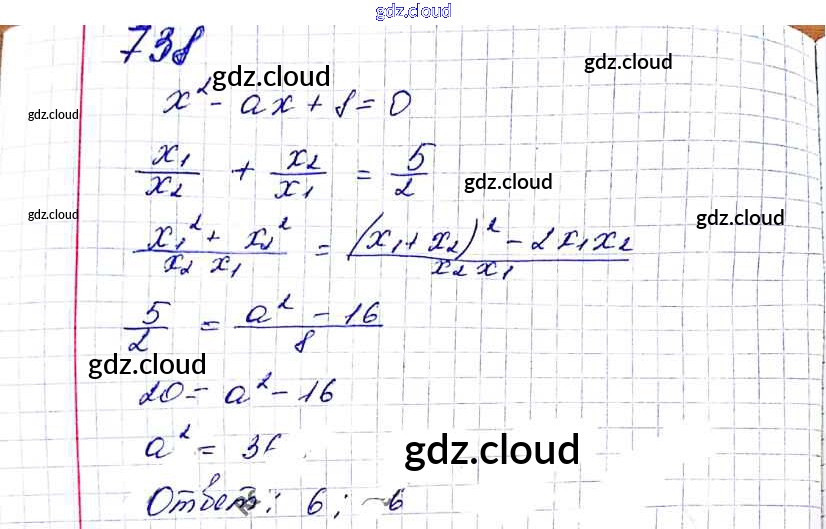 gdz.cloud
738
gdz.cloud
gdz.cloud
x² - ax + 8 = 0
gdz.cloud
x₁/x₂ + x₂/x₁ = 5/2
gdz.cloud
gdz.cloud
gdz.cloud
x₁² + x₂² / x₂ x₁ = (x₁ + x₂)² - 2x₁x₂ / x₂ x₁
5/2 = a² - 16 / 8
gdz.cloud
20 = a² - 16
a² = 36
gdz.cloud
Ответ: 6; -6